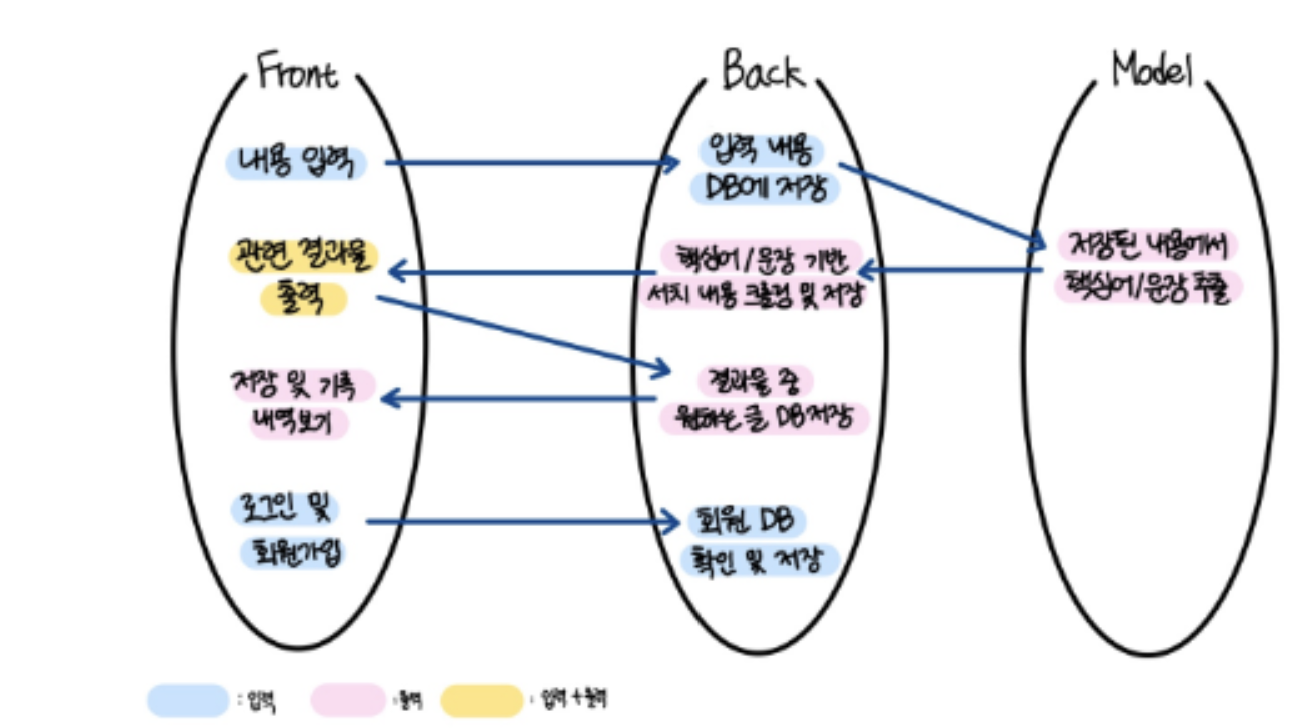 Front
내용 입력
관련 결과물
출력
저장 및 기록
내역보기
로그인 및
회원가입
Back
입력 내용
DB에 저장
핵심어/문장 기반
서치 내용 크롤링 및 저장
결과물 중
원하는 글 DB저장
회원 DB
확인 및 저장
Model
저장된 내용에서
핵심어/문장 추출
: 입력
: 출력
: 입력+출력